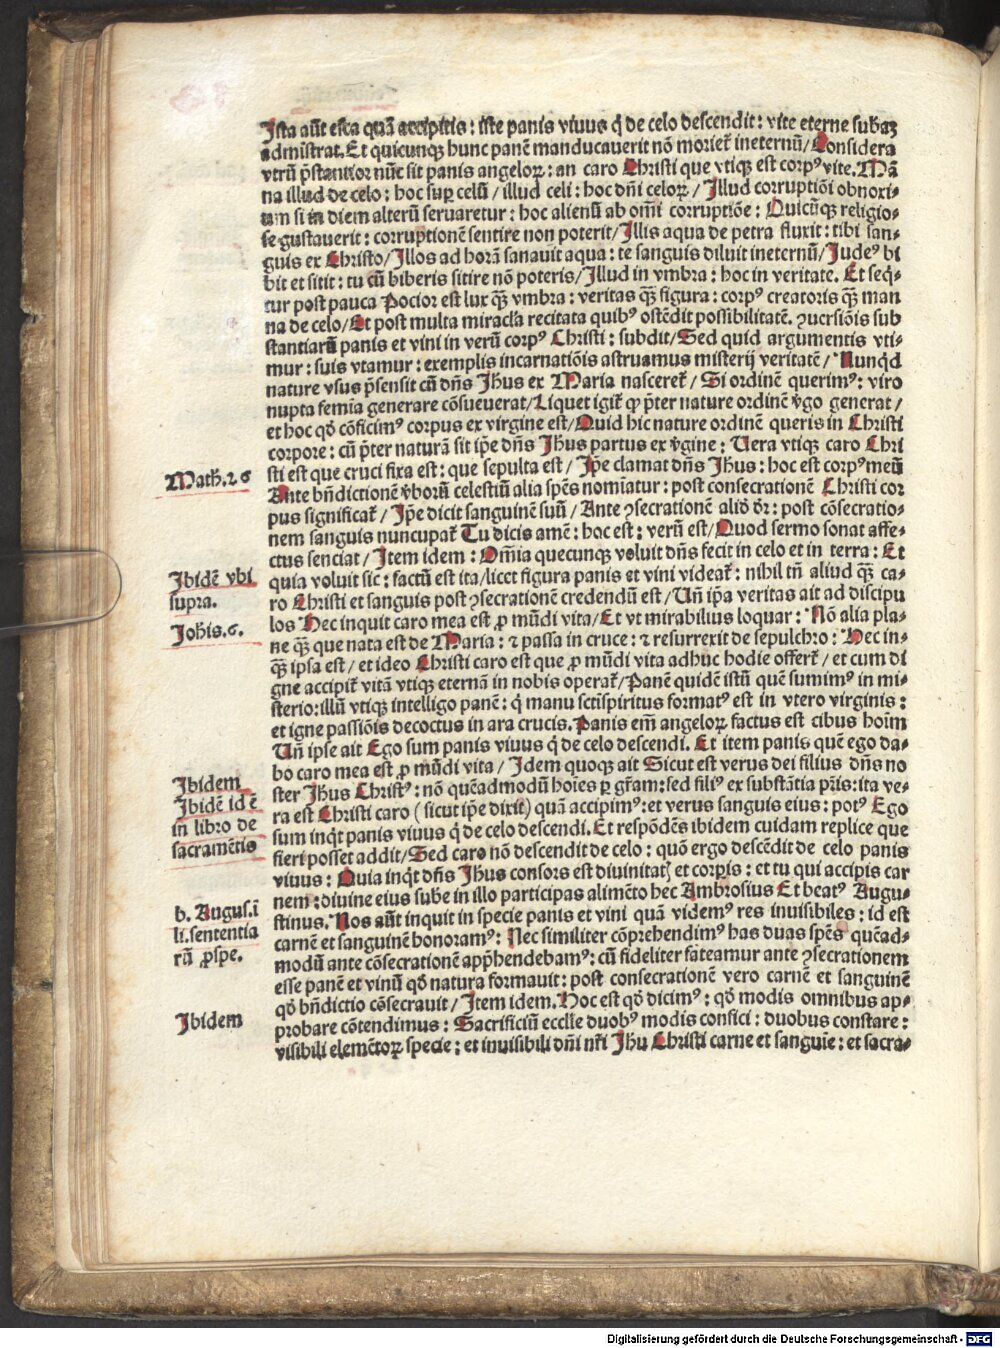 Ista aūt esca quā accipitis: iste panis viuus q̇ de celo descendit: vite eterne subaʒ
admīstrat. Et quicunqꝫ hunc panē manducauerit nō morieť ineternū/ Considera
vtrū p̄stantior nūc sit panis angeloꝝ: an caro Christi que vtiqꝫ est corpꝰ vite. Mā
na illud de celo: hoc sup celū/ illud celi: hoc dn̄i celoꝝ/ Illud corruptiōi obnori-
um si in diem alterū seruaretur: hoc alienū ab om̄i corruptiōe: Quicūqꝫ religio-
se gustauerit: corruptionē sentire non poterit/ Illis aqua de petra fluxit: tibi san-
guis ex Christo/ Illos ad horā sanauit aqua: te sanguis diluit ineternū/ Judeꝰ bi
bit et sitit: tu cū biberis sitire nō poteris/ Illud in vmbra: hoc in veritate. Et seq̇-
tur post pauca Pocior est lux qꝫ̄ vmbra: veritas qꝫ̄ figura: corpꝰ creatoris qꝫ̄ man
na de celo/ Et post multa miracl̄a recitata quibꝰ ostēdit possibilitatē. ꝯuersiōis sub
stantiarū panis et vini in verū corpꝰ Christi: subdit/ Sed quid argumentis vti-
mur: suis vtamur: exemplis incarnatiōis astruamus misterij veritatē/ Nunq̇d
nature vsus p̄sensit cū dn̄s Jhūs ex Maria nasceret̄/ Si ordinē querimꝰ: viro
nupta femīa generare cōsueuerat/ Liquet igit̄ ꝙ p̄ter nature ordinē v̇go generat/
et hoc qḋ cōficimꝰ corpus ex virgine est/ Quid hic nature ordinē queris in Christi
corpore: cū p̄ter naturā sit ip̄e dn̄s Jhūs partus ex v̇gine: Uera vtiqꝫ caro Chri
sti est que cruci fixa est: que sepulta est/ Ip̄e clamat dn̄s Jhūs: hoc est corpꝰ meū
Math. 26
Ante bn̄dictionē v̇borū celestiū alia spēs nomīatur: post consecrationē Christi cor
pus significat̄/ Ip̄e dicit sanguinē suū/ Ante ꝯsecrationē aliḋ dr̄: post cōsecratio-
nem sanguis nuncupat̄ Tu dicis amē: hoc est: verū est/ Quod sermo sonat affe-
ctus senciat/ Item idem: Om̄ia quecunqꝫ voluit dn̄s fecit in celo et in terra: Et
Ibidē vbi
supra.
quia voluit sic: factū est ita/ licet figura panis et vini videat̄: nihil tn̄ aliud qꝫ̄ ca-
ro Christi et sanguis post ꝯsecrationē credendū est/ Un̄ ip̄a veritas ait ad discipu
los Hec inquit caro mea est ꝓ mūdi vita/ Et vt mirabilius loquar: Nō alia pla-
Johis. 6.
ne qꝫ̄ que nata est de Maria: ⁊ passa in cruce: ⁊ resurrexit de sepulchro: Hec in-
qꝫ̄ ipsa est/ et ideo Christi caro est que ꝓ mūdi vita adhuc hodie offert̄/ et cum di
gne accipit̄ vitā vtiqꝫ eternā in nobis operat̄/ Panē quidē istū quē sumimꝰ in mi-
sterio: illū vtiqꝫ intelligo panē: q̇ manu sct̄ispiritus formatꝰ est in vtero virginis:
et igne passiōis decoctus in ara crucis. Panis em̄ angeloꝝ factus est cibus hoīm
Un̄ ipse ait Ego sum panis viuus q̇ de celo descendi. Et item panis quē ego da-
bo caro mea est ꝓ mūdi vita/ Idem quoqꝫ ait Sicut est verus dei filius dn̄s no
Ibidem
ster Jhūs Christꝰ: nō quēadmodū hoīes ꝑ gr̄am: sed filiꝰ ex substātia pr̄is: ita ve-
Ibidē idē
in libro de
sacramētis
ra est Christi caro (sicut ip̄e dixit) quā accipimꝰ: et verus sanguis eius: potꝰ Ego
sum inq̇t panis viuus q̇ de celo descendi. Et respōdēs ibidem cuidam replice que
fieri posset addit/ Sed caro nō descendit de celo: quō ergo descēdit de celo panis
viuus: Quia inq̇t dn̄s Jhūs consors est diuinitatꝭ et corpꝑis: et tu qui accipis car
nem: diuine eius sube in illo participas alimēto hec Ambrosius Et beatꝰ Augu
b. Augus. ī
li. sententia
rū ꝓspe.
stinus. Nos aūt inquit in specie panis et vini quā videmꝰ res inuisibiles: id est
carnē et sanguinē honoramꝰ: Nec similiter cōprehendimꝰ has duas spēs quēad-
modū ante cōsecrationē app̄hendebamꝰ: cū fideliter fateamur ante ꝯsecrationem
esse panē et vinū qḋ natura formauit: post consecrationē vero carnē et sanguinē
qḋ bn̄dictio cōsecrauit/ Item idem. Hoc est qḋ dicimꝰ: qḋ modis omnibus ap-
Ibidem
probare cōtendimus: Sacrificiū eccl̄ie duobꝰ modis confici: duobus constare:
visibili elemētoꝝ specie: et inuisibili dn̄i nr̄i Jhū Christi carne et sanguīe: et sacra-
Digitalisierung gefördert durch die Deutsche Forschungsgemeinschaft - DFG